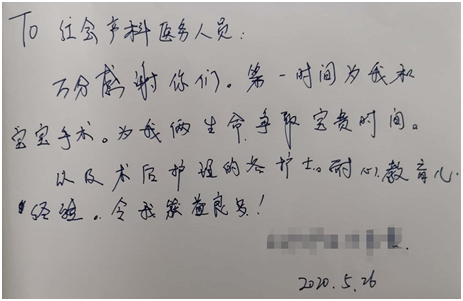 To 红会产科医务人员:
万分感谢你们。第一时间为我和
宝宝手术。为我俩生命争取宝贵时间。
以及术后护理的各护士。耐心教育儿
经验。令我获益良多!
2020.5.26